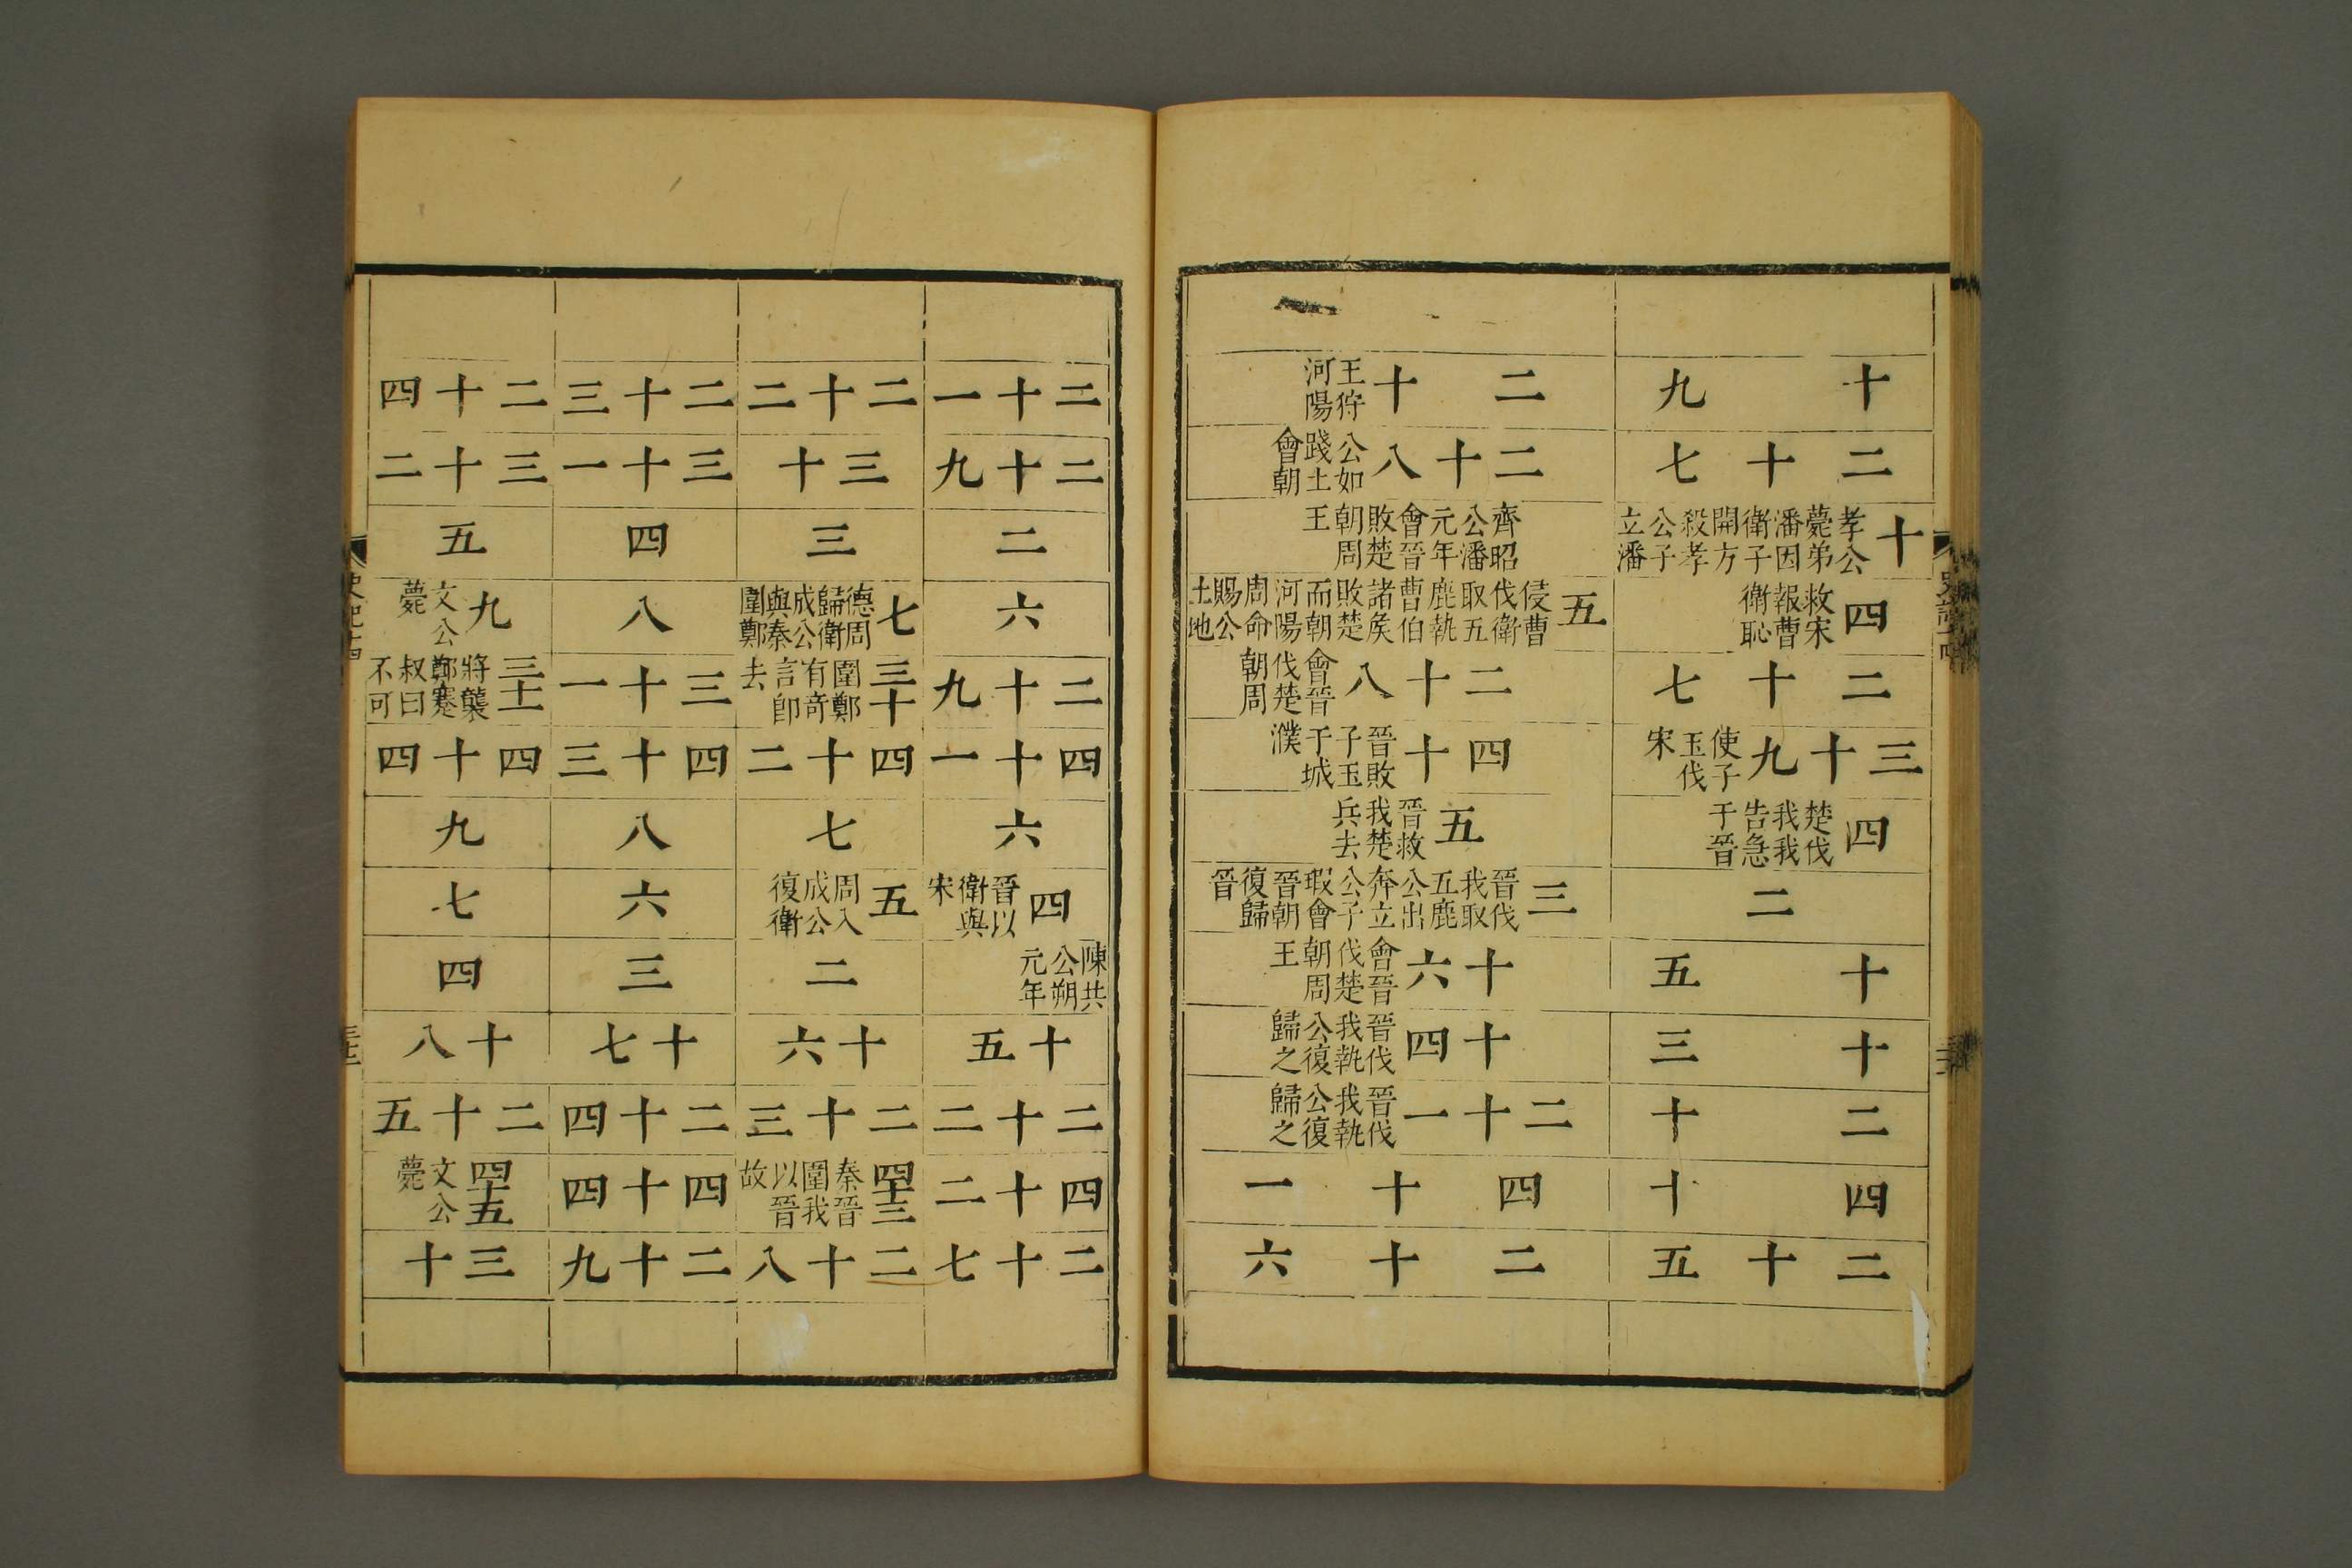 十九
二十七
十孝公薨弟潘因衛子開方殺孝公子立潘
四救宋報曹衛恥
二十七
三十九使子玉伐宋
四楚伐我我告急于晉
二
十五
十三
二十
四十
二十五
二十王狩河陽
二十八公如踐土會朝
齊昭公潘元年會晉敗楚朝周王
五侵曹伐衛取五鹿執曹伯諸矦敗楚而朝河陽周命賜公土地
二十八會晉伐楚朝周
四十晉敗子玉于城濮
五晉救我楚兵去
三晉伐我取五鹿公出奔立公子瑕會晉朝復歸晉
十六會晉伐楚朝周王
十四晉伐我執公復歸之
二十一晉伐我執公復歸之
四十一
二十六
二十一
二十九
二
六
二十九
四十一
六
四晉以衛與宋
陳共公朔元年
十五
二十二
四十二
二十七
二十二
三十
三
七德周歸衛成公與秦圍鄭
三十圍鄭有竒言卽去
四十二
七
五周入成公復衛
二
十六
二十三
四十三秦晉圍我以晉故
二十八
二十三
三十一
四
八
三十一
四十三
八
六
三
十七
二十四
四十四
二十九
二十四
三十二
五
九文公薨
三十二將襲鄭蹇叔曰不可
四十四
九
七
四
十八
二十五
四十五文公薨
三十
史記十四